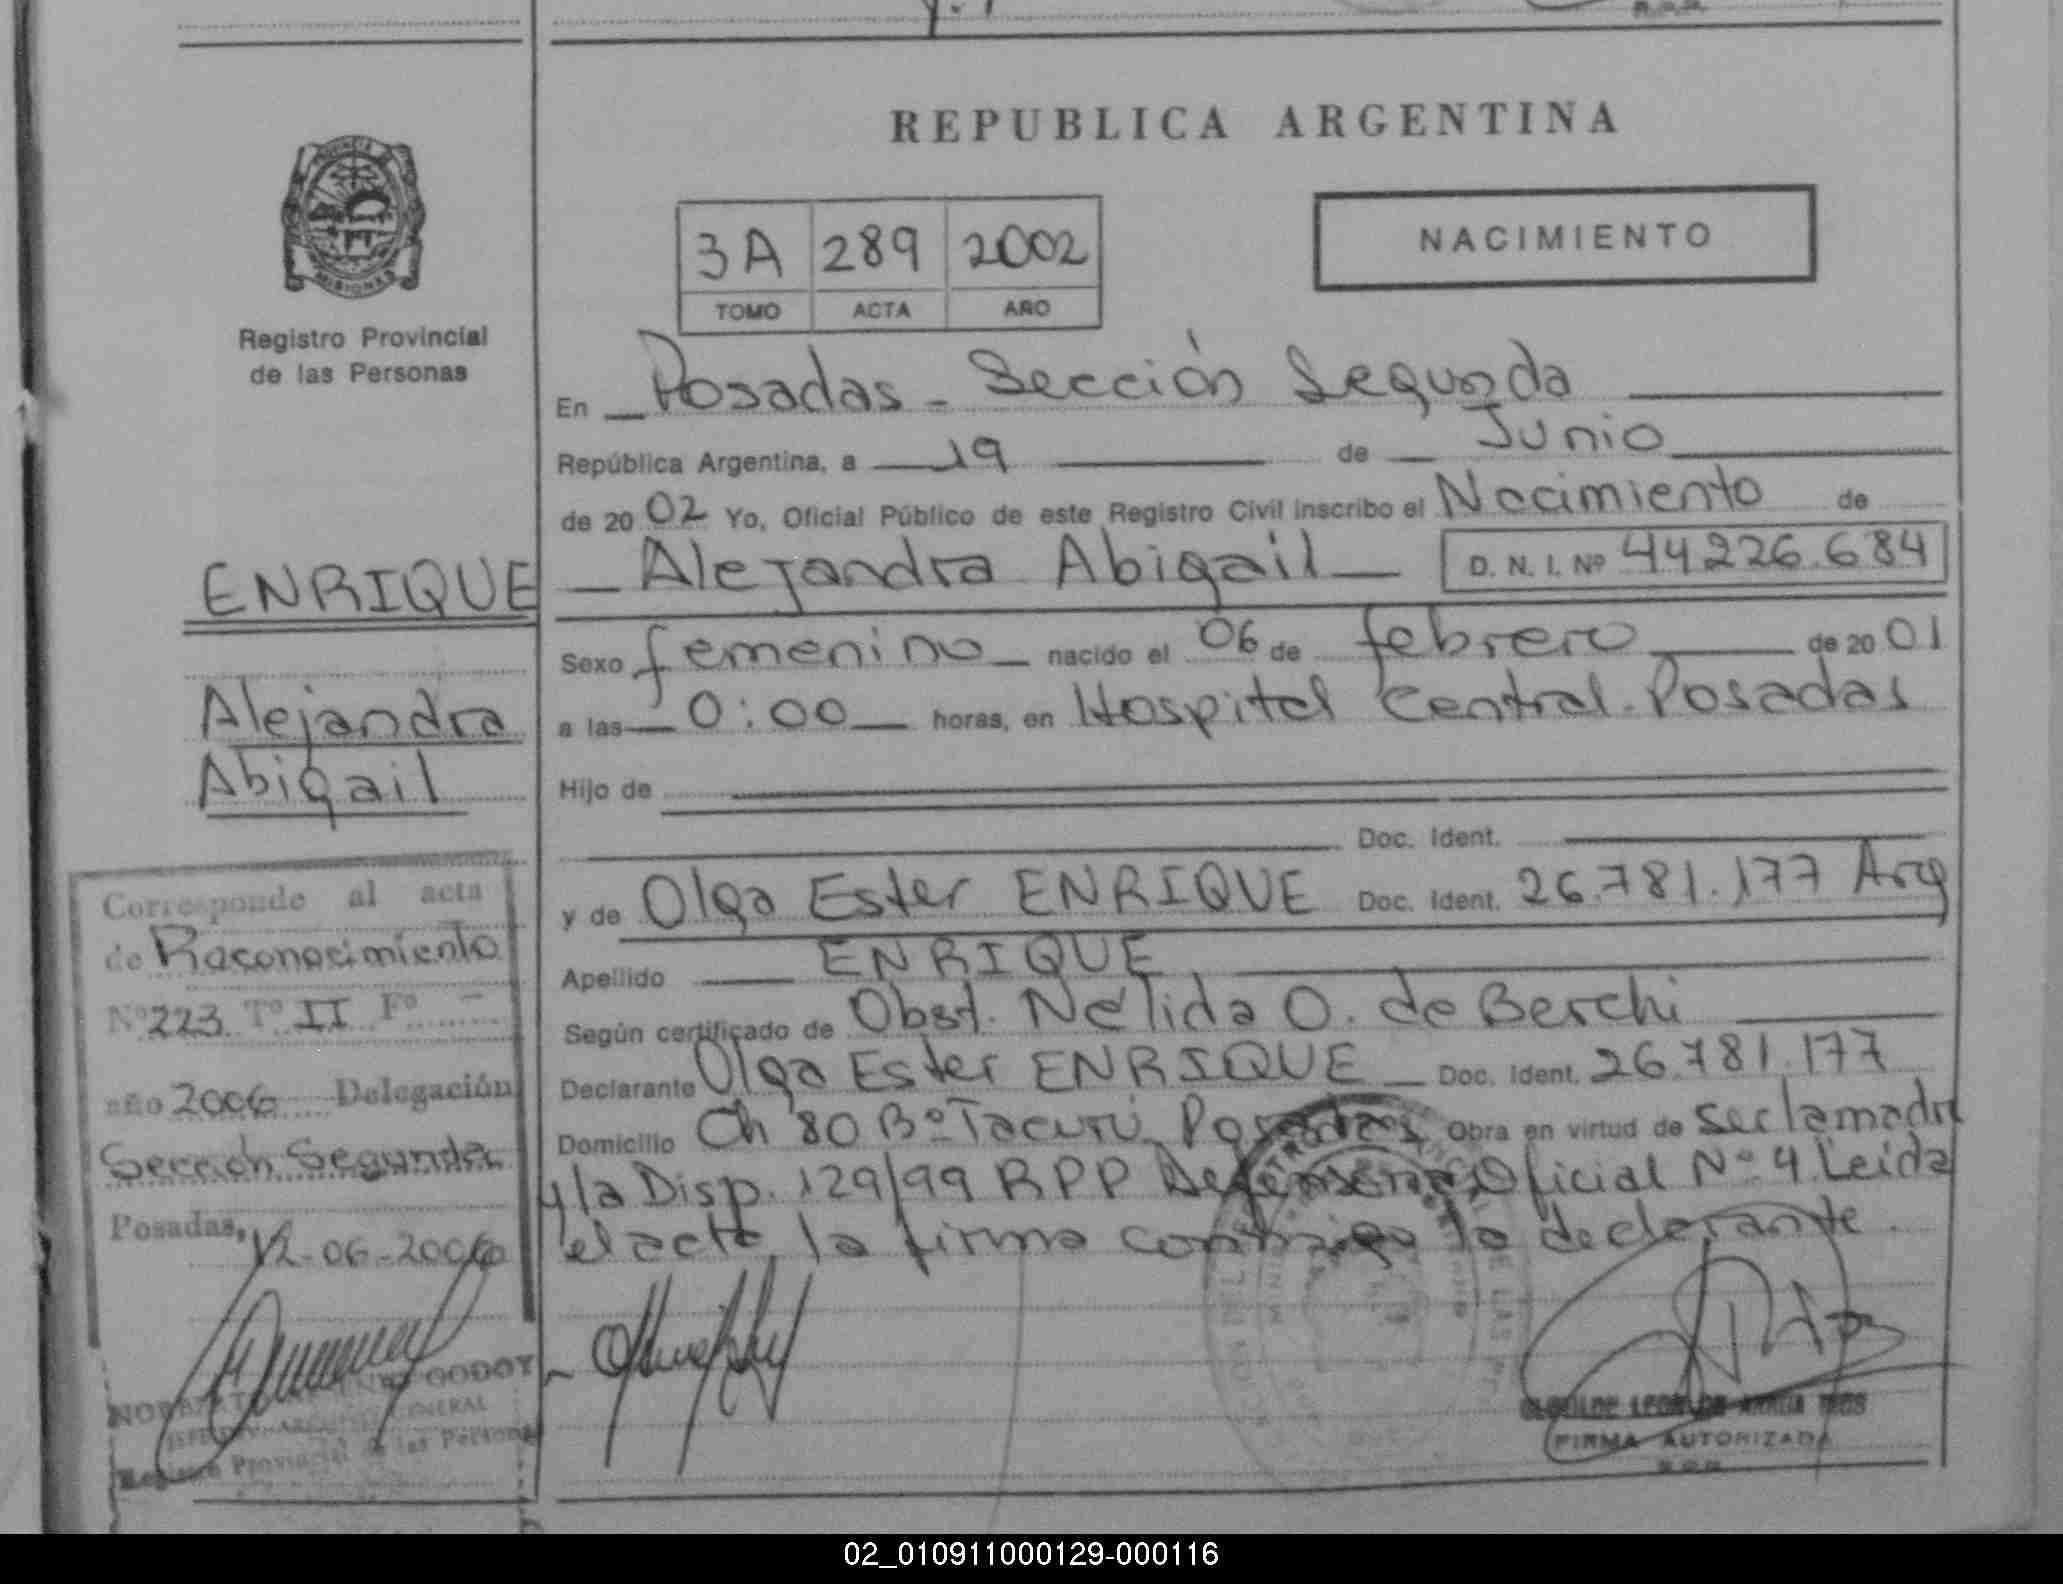 REPUBLICA ARGENTINA
PROVINCIA DE
MISIONES
Registro Provincial
de las Personas
3A 289 2002
TOMO ACTA AÑO
NACIMIENTO
En Posadas - Sección Segunda
República Argentina, a 19 de Junio
de 2002 Yo, Oficial Público de este Registro Civil inscribo el Nacimiento de
Alejandra Abigail D. N. I. Nº 44226.684
Sexo femenino nacido el 06 de febrero de 2001
a las 0:00 horas, en Hospital Central - Posadas
Hijo de
Doc. Ident.
y de Olga Ester ENRIQUE Doc. Ident. 26.781.177 Arg
Apellido ENRIQUE
Según certificado de Obst. Nélida O. de Berchi
Declarante Olga Ester ENRIQUE Doc. Ident. 26.781.177
Domicilio Ch 80 Bº Tacurú Posadas Obra en virtud de
y la Disp. 129/99 RPP Defensoria Oficial Nº 4 Leida
el acta, la firma conmigo la declarante.
FIRMA AUTORIZADA
ENRIQUE
Alejandra
Abigail
Corresponde al acta
de Raconocimiento
Nº 223 Tº II Fº -
año 2006 Delegación
Sección Segunda
Posadas, 12-06-2006
GODOY
GENERAL
Registro Provincial de las Personas
02_010911000129-000116